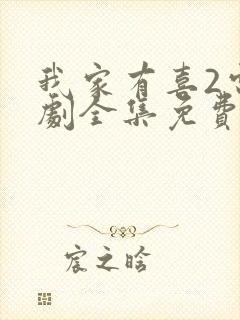 我家有喜2
劇全集免費
宸之晗